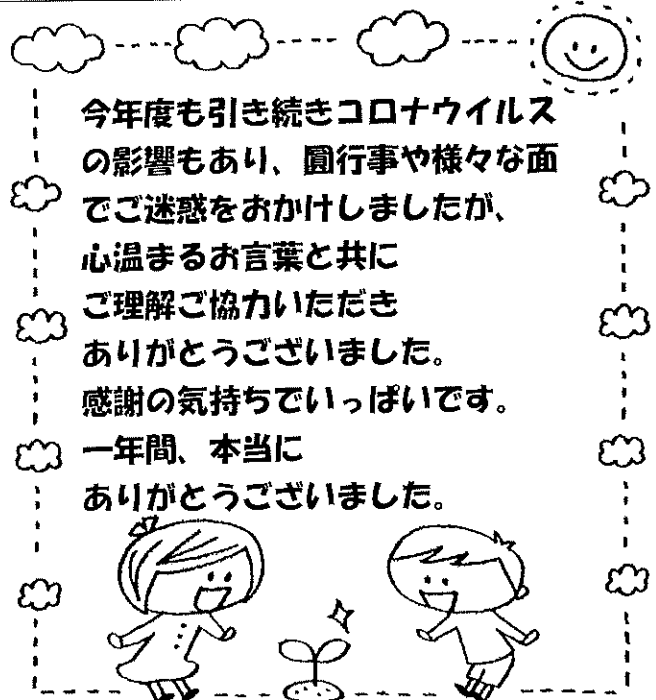 今年度も引き続きコロナウイルス
の影響もあり、園行事や様々な面
でご迷惑をおかけしましたが、
心温まるお言葉と共に
ご理解ご協力いただき
ありがとうございました。
感謝の気持ちでいっぱいです。
一年間、本当に
ありがとうございました。